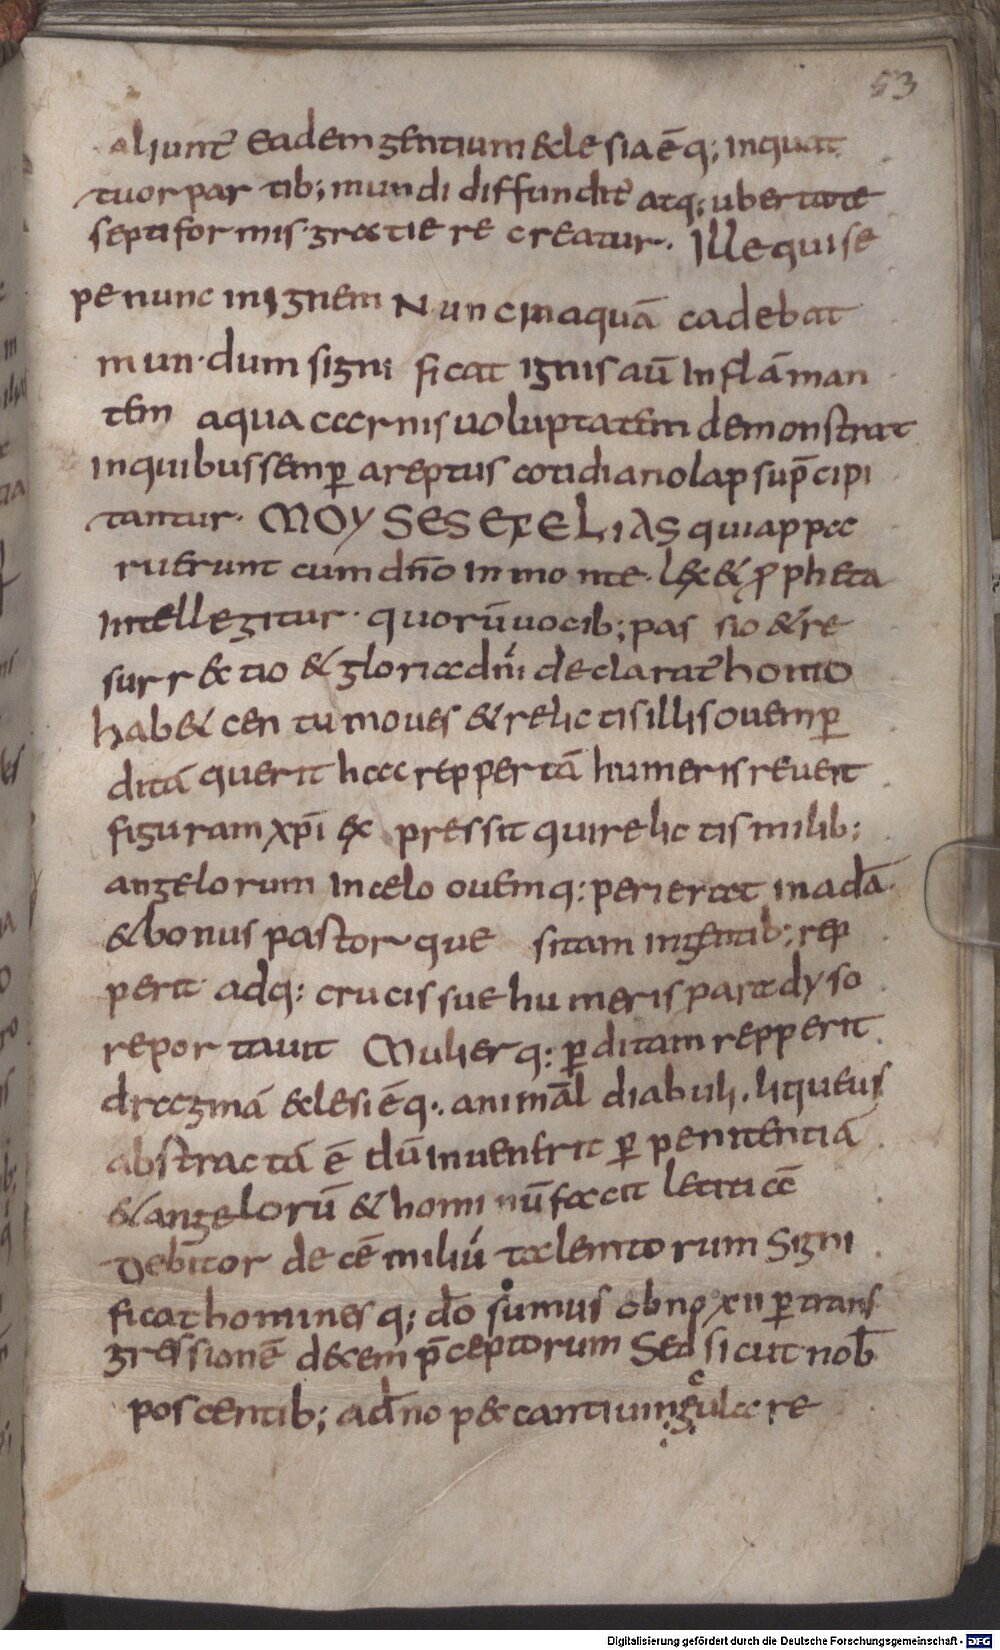 53
aliunt᷒ Eadem gentium &cle sia ē q; inquat
tuor par tib; mundi diffundit᷒ atq; ubertate
septiformis gratie re creatur. Ille qui se
pe nunc in ignem Nunc in aquā cadebat
mun·dum signi ficat ignis aū In flāman
tem aqua carnis uoluptatem demonstrat
in quibus semꝑ areptus cotidiano lapsu p̄cipi
tantur· MOYSES ET ELIAS qui appa
ruerunt cum dn̄o in monte· lex & ꝓpheta
Intellegitur· quorū uocib; passio & re
surr&tio & gloria dn̄i declarat᷒ homo
hab& centum oues & relictis illis ouem ꝑ
ditā querit hac reppertā humeris reueit
figuram xp̄i ex pressit qui relictis milib;
angelorum In celo ouem q: perierat in adā
& bonus pastor que sitam in gentib; rep
perit adq: crucis sue humeris paradyso
repor tauit Mulier q: ꝑditam repperit
dragmā &clesi ē q·, animāl diabuli. liqueus
abstractā ē dū inuenerit ꝑ penitentiā
& angelorū & hominū facit letitiā
Debitor decē miliū talentorum Signi
ficat homines q; dō sumus obnoxii ꝑ trans
gressionē decem p̄ceptorum Sed sicut nob̄
poscentib; ad̄no peccantium gulare
Digitalisierung gefördert durch die Deutsche Forschungsgemeinschaft - DFG